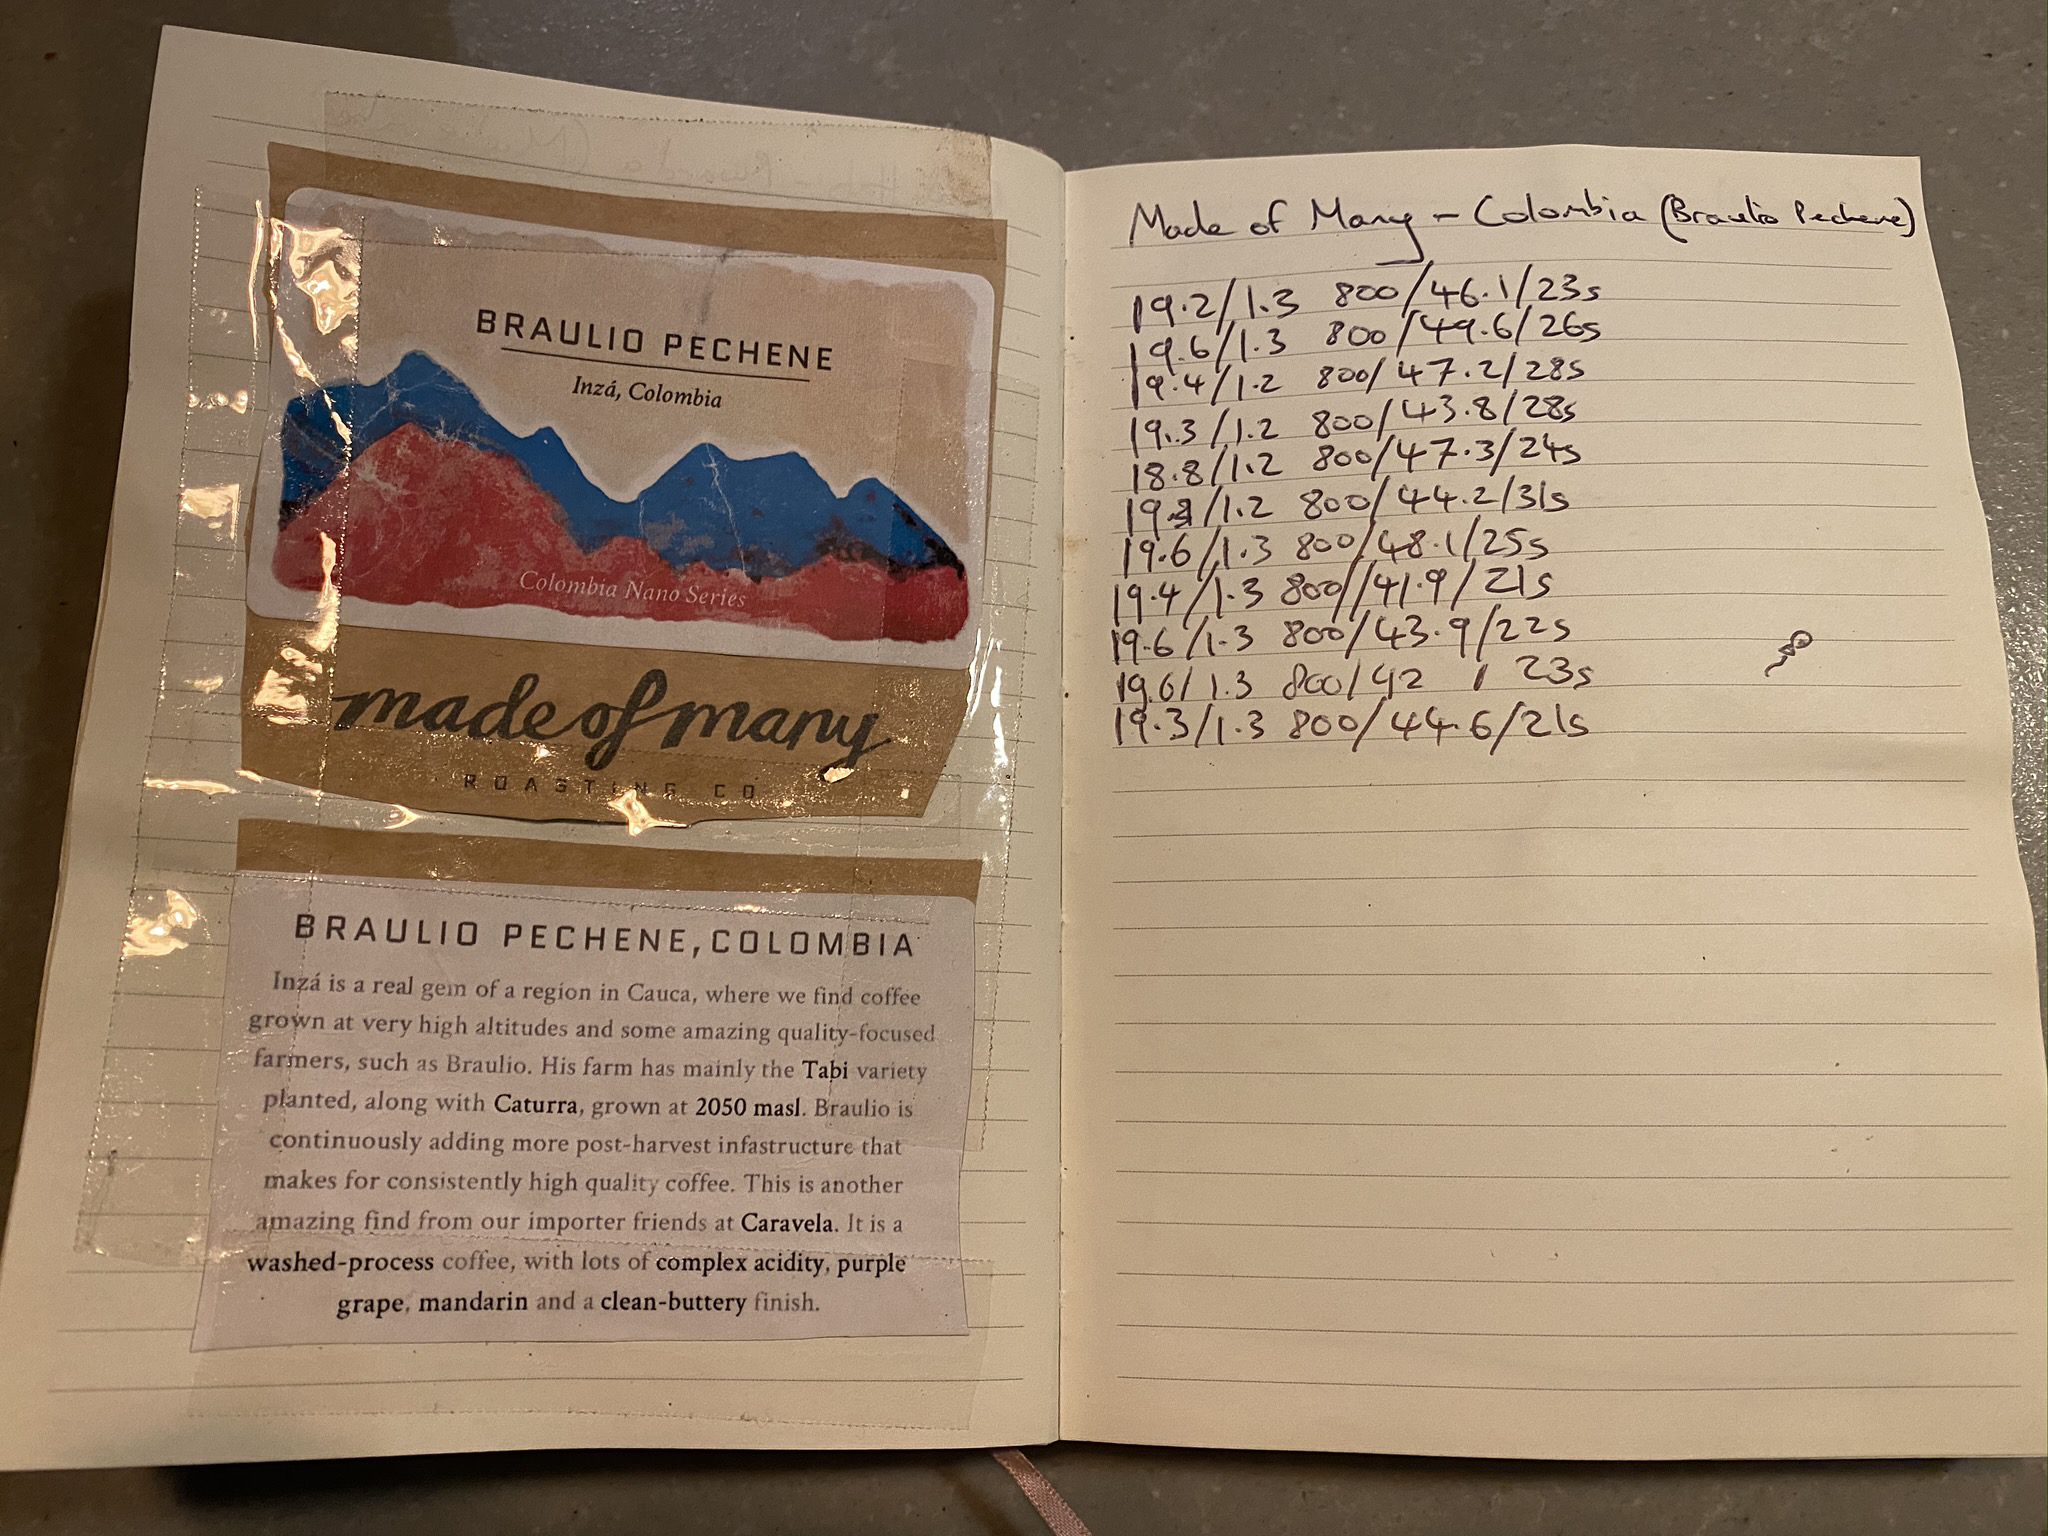 BRAULIO PECHENE
Inzá, Colombia
Colombia Nano Series
made of many
ROASTING CO
BRAULIO PECHENE, COLOMBIA
Inzá is a real gem of a region in Cauca, where we find coffee
grown at very high altitudes and some amazing quality-focused
farmers, such as Braulio. His farm has mainly the Tabi variety
planted, along with Caturra, grown at 2050 masl. Braulio is
continuously adding more post-harvest infastructure that
makes for consistently high quality coffee. This is another
amazing find from our importer friends at Caravela. It is a
washed-process coffee, with lots of complex acidity, purple
grape, mandarin and a clean-buttery finish.
Made of Many - Colombia (Braulio Pechene)
19.2/1.3 800/46.1/23s
19.6/1.3 800/49.6/26s
19.4/1.2 800/47.2/28s
19.3/1.2 800/43.8/28s
18.8/1.2 800/47.3/24s
/1.2 800/44.2/31s
19.6/1.3 800/48.1/25s
19.4/1.3 800//41.9/21s
19.6/1.3 800/43.9/22s
19.6/1.3 800/42 / 23s
19.3/1.3 800/44.6/21s